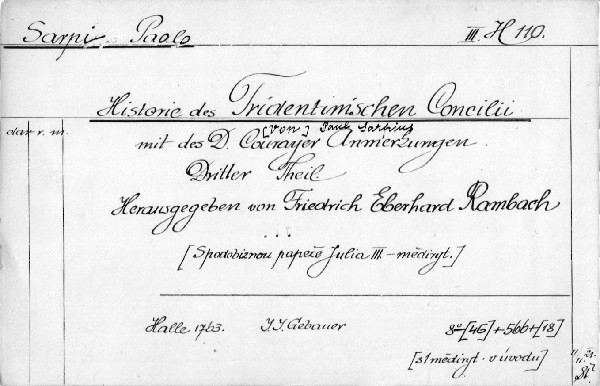 Sarpi Paolo III. H 110.
Historie des Tridentinischen Concilii
[von] Paul Sarpius
mit des D. Courayer Anmerkungen
Dritter Theil.
Herausgegeben von Friedrich Eberhard Rambach
...
[S podobiznou papeže Julia III. – mědiryt.]
Halle 1763. J. J. Gebauer 8º-[46]+566+[18]
[3 mědiryt. v úvodu]